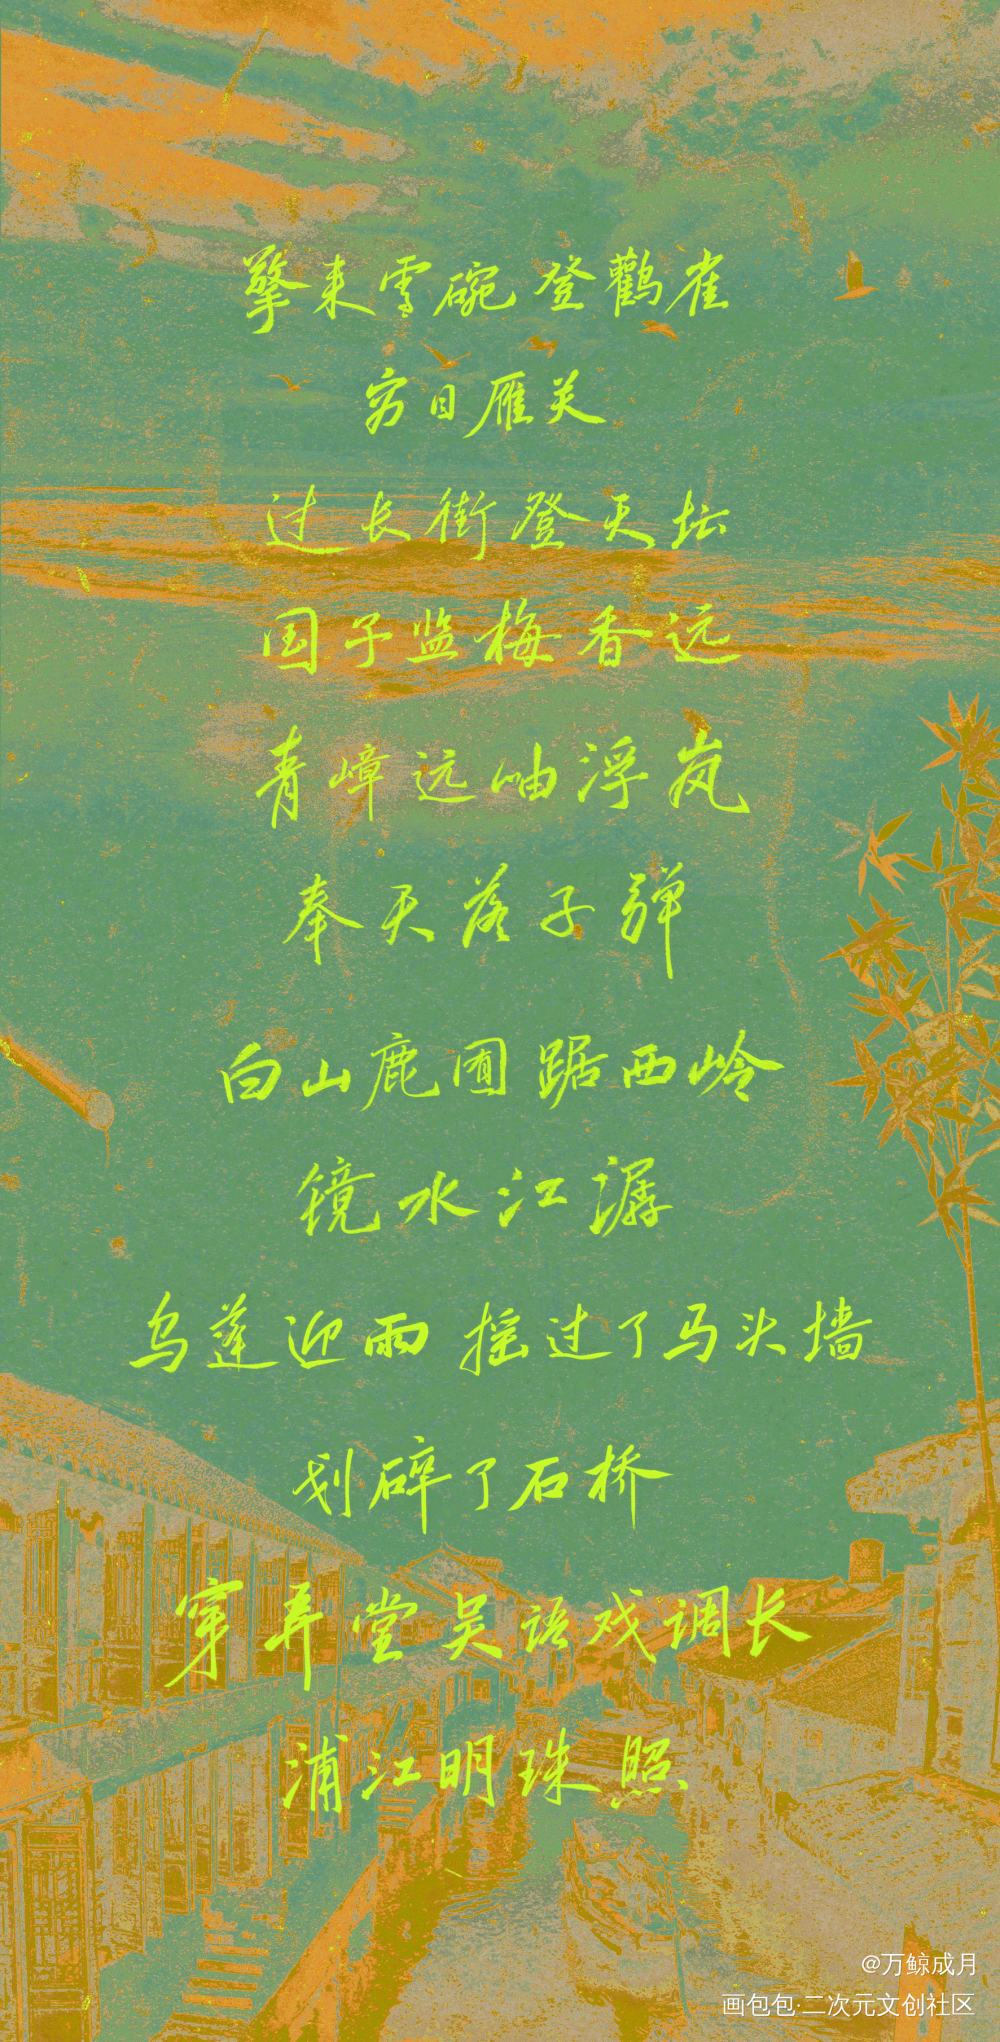 擎来雪碗 登鹳雀
穷日雁关
过长街登天坛
国子监梅香远
青嶂远岫浮岚
奉天落子弹
白山鹿囿踞西岭
镜水江潺
乌蓬迎雨 摇过了马头墙
划碎了石桥
穿弄堂吴语戏调长
浦江明珠照
@万鲸成月
画包包·二次元文创社区